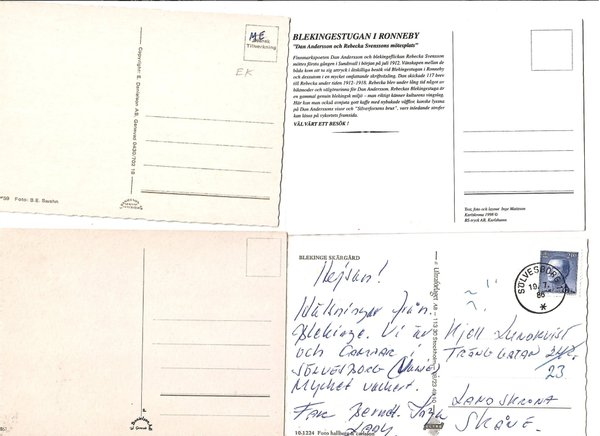 ME
Svensk
Tillverkning
EK
Copyright: E. Danielson AB, Genevad 0430/702 10
Foto: B.E. Barehn
BLEKINGESTUGAN I RONNEBY
"Dan Andersson och Rebecka Svenssons mötesplats"
Finnmarkspoeten Dan Andersson och blekingeflickan Rebecka Svensson
möttes första gången i Sundsvall i början på juli 1912. Vänskapen mellan de
båda kom att ta sig uttryck i åtskilliga besök vid Blekingestugan i Ronneby
och dessutom i en mycket omfattande skriftväxling. Dan skickade 117 brev
till Rebecka under tiden 1912-1918. Rebecka blev under lång tid något av
hälsmoder och välgöterinna för Dan Andersson. Blekingestugan är
en gammal genuin blekingsk miljö - man riktigt känner kulturens vingslag.
Här kan man också avnjuta gott kaffe med nybakade våfflor, kanske lyssna
på Dan Anderssons visor och "Silverforsens brus", vars inledande strofer
kan läsas på vykortets framsida.
VÄL VÄRT ETT BESÖK !
Text, foto och layout: Inge Mattsson
Karlskrona 1998 ©
BS-tryck AB, Karlshamn
BLEKINGE SKÄRGÅRD
Hejsan!
Hälsningar från
Blekinge. Vi är
och campar i
SÖLVESBORG
Mycket vackert.
SÖLVESBORG
19. 7.
86
Kjell Lundkvist
Trånggatan
23
LANDSKRONA
SKÅNE.
10-1224 Foto hallberg & carlsson